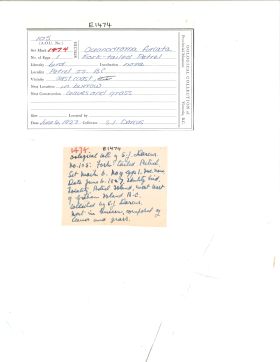 E1474
105
(A.O.U. No.)
Set Mark 1474 Oceanodroma furcata
No. of Eggs 1 Fork-tailed Petrel
Identity bird Incubation none
Locality Petrel Is. BC
West coast
Nest Location in burrow
Nest Construction leaves and grass
Located by
Date June 6, 1927 Collector S.J. Darcus
E1474
1474.
Oological coll. of S.J. Darcus.
No. 105. Fork Tailed Petrel
Set mark 6. No of eggs 1. Inc. none
Date June 6. 1927. Identity bird.
Locality Petrel Island, west coast
of Graham Island B.C.
Collected by S.J. Darcus.
Nest in burrow, composed of
leaves and grass.